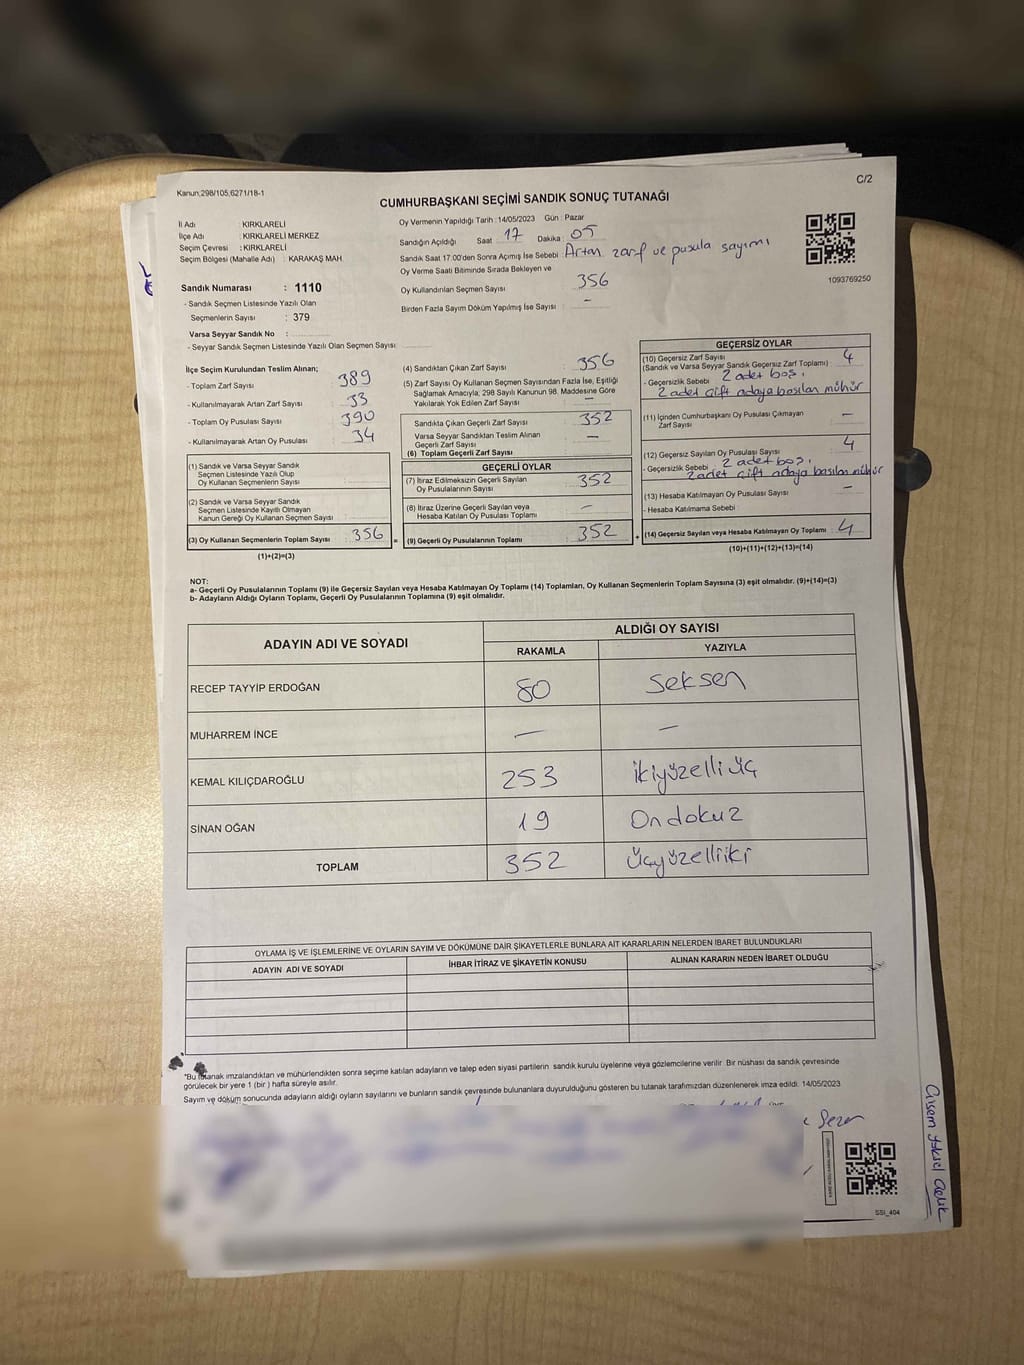 Kanun,298/105,6271/18-1
C/2
CUMHURBAŞKANI SEÇİMİ SANDIK SONUÇ TUTANAĞI
İl Adı : KIRKLARELİ
İlçe Adı : KIRKLARELİ MERKEZ
Seçim Çevresi : KIRKLARELİ
Seçim Bölgesi (Mahalle Adı) : KARAKAŞ MAH
Oy Vermenin Yapıldığı Tarih : 14/05/2023 Gün : Pazar
Sandığın Açıldığı Saat 17 Dakika : 05
Sandık Saat 17.00'den Sonra Açımış İse Sebebi : Artan zarf ve pusula sayımı
Oy Verme Saati Bitiminde Sırada Bekleyen ve
Oy Kullandırılan Seçmen Sayısı : 356
Birden Fazla Sayım Döküm Yapılmış İse Sayısı : –
1093769250
Sandık Numarası : 1110
- Sandık Seçmen Listesinde Yazılı Olan
Seçmenlerin Sayısı : 379
Varsa Seyyar Sandık No :
- Seyyar Sandık Seçmen Listesinde Yazılı Olan Seçmen Sayısı:
İlçe Seçim Kurulundan Teslim Alınan;
- Toplam Zarf Sayısı : 389
- Kullanılmayarak Artan Zarf Sayısı : 33
- Toplam Oy Pusulası Sayısı : 390
- Kullanılmayarak Artan Oy Pusulası : 34
(1) Sandık ve Varsa Seyyar Sandık
Seçmen Listesinde Yazılı Olup
Oy Kullanan Seçmenlerin Sayısı :
(2) Sandık ve Varsa Seyyar Sandık
Seçmen Listesinde Kayıtlı Olmayan
Kanun Gereği Oy Kullanan Seçmen Sayısı :
(3) Oy Kullanan Seçmenlerin Toplam Sayısı : 356
(1)+(2)=(3)
(4) Sandıktan Çıkan Zarf Sayısı : 356
(5) Zarf Sayısı Oy Kullanan Seçmen Sayısından Fazla İse, Eşitliği
Sağlamak Amacıyla; 298 Sayılı Kanunun 98. Maddesine Göre
Yakılarak Yok Edilen Zarf Sayısı : –
Sandıkta Çıkan Geçerli Zarf Sayısı : 352
Varsa Seyyar Sandıktan Teslim Alınan
Geçerli Zarf Sayısı : –
(6) Toplam Geçerli Zarf Sayısı :
GEÇERLİ OYLAR
(7) İtiraz Edilmeksizin Geçerli Sayılan
Oy Pusulalarının Sayısı : 352
(8) İtiraz Üzerine Geçerli Sayılan veya
Hesaba Katılan Oy Pusulası Toplamı : –
= (9) Geçerli Oy Pusulalarının Toplamı : 352 +
GEÇERSİZ OYLAR
(10) Geçersiz Zarf Sayısı
(Sandık ve Varsa Seyyar Sandık Geçersiz Zarf Toplamı) : 4
- Geçersizlik Sebebi : 2 adet boş,
2 adet çift adaya basılan mühür
(11) İçinden Cumhurbaşkanı Oy Pusulası Çıkmayan
Zarf Sayısı : –
(12) Geçersiz Sayılan Oy Pusulası Sayısı : 4
- Geçersizlik Sebebi : 2 adet boş,
2 adet çift adaya basılan mühür
(13) Hesaba Katılmayan Oy Pusulası Sayısı : –
- Hesaba Katılmama Sebebi :
(14) Geçersiz Sayılan veya Hesaba Katılmayan Oy Toplamı : 4
(10)+(11)+(12)+(13)=(14)
NOT:
a- Geçerli Oy Pusulalarının Toplamı (9) ile Geçersiz Sayılan veya Hesaba Katılmayan Oy Toplamı (14) Toplamları, Oy Kullanan Seçmenlerin Toplam Sayısına (3) eşit olmalıdır. (9)+(14)=(3)
b- Adayların Aldığı Oyların Toplamı, Geçerli Oy Pusulalarının Toplamına (9) eşit olmalıdır.
ADAYIN ADI VE SOYADI ALDIĞI OY SAYISI
RAKAMLA YAZIYLA
RECEP TAYYİP ERDOĞAN 80 Seksen
MUHARREM İNCE – –
KEMAL KILIÇDAROĞLU 253 İkiyüzelliüç
SİNAN OĞAN 19 Ondokuz
TOPLAM 352 Üçyüzelliiki
OYLAMA İŞ VE İŞLEMLERİNE VE OYLARIN SAYIM VE DÖKÜMÜNE DAİR ŞİKAYETLERLE BUNLARA AİT KARARLARIN NELERDEN İBARET BULUNDUKLARI
ADAYIN ADI VE SOYADI İHBAR İTİRAZ VE ŞİKAYETİN KONUSU ALINAN KARARIN NEDEN İBARET OLDUĞU
*Bu tutanak imzalandıktan ve mühürlendikten sonra seçime katılan adayların ve talep eden siyasi partilerin sandık kurulu üyelerine veya gözlemcilerine verilir. Bir nüshası da sandık çevresinde
görülecek bir yere 1 (bir) hafta süreyle asılır.
Sayım ve döküm sonucunda adayların aldığı oyların sayılarını ve bunların sandık çevresinde bulunanlara duyurulduğunu gösteren bu tutanak tarafımızdan düzenlenerek imza edildi. 14/05/2023
Sezer
SSI_404